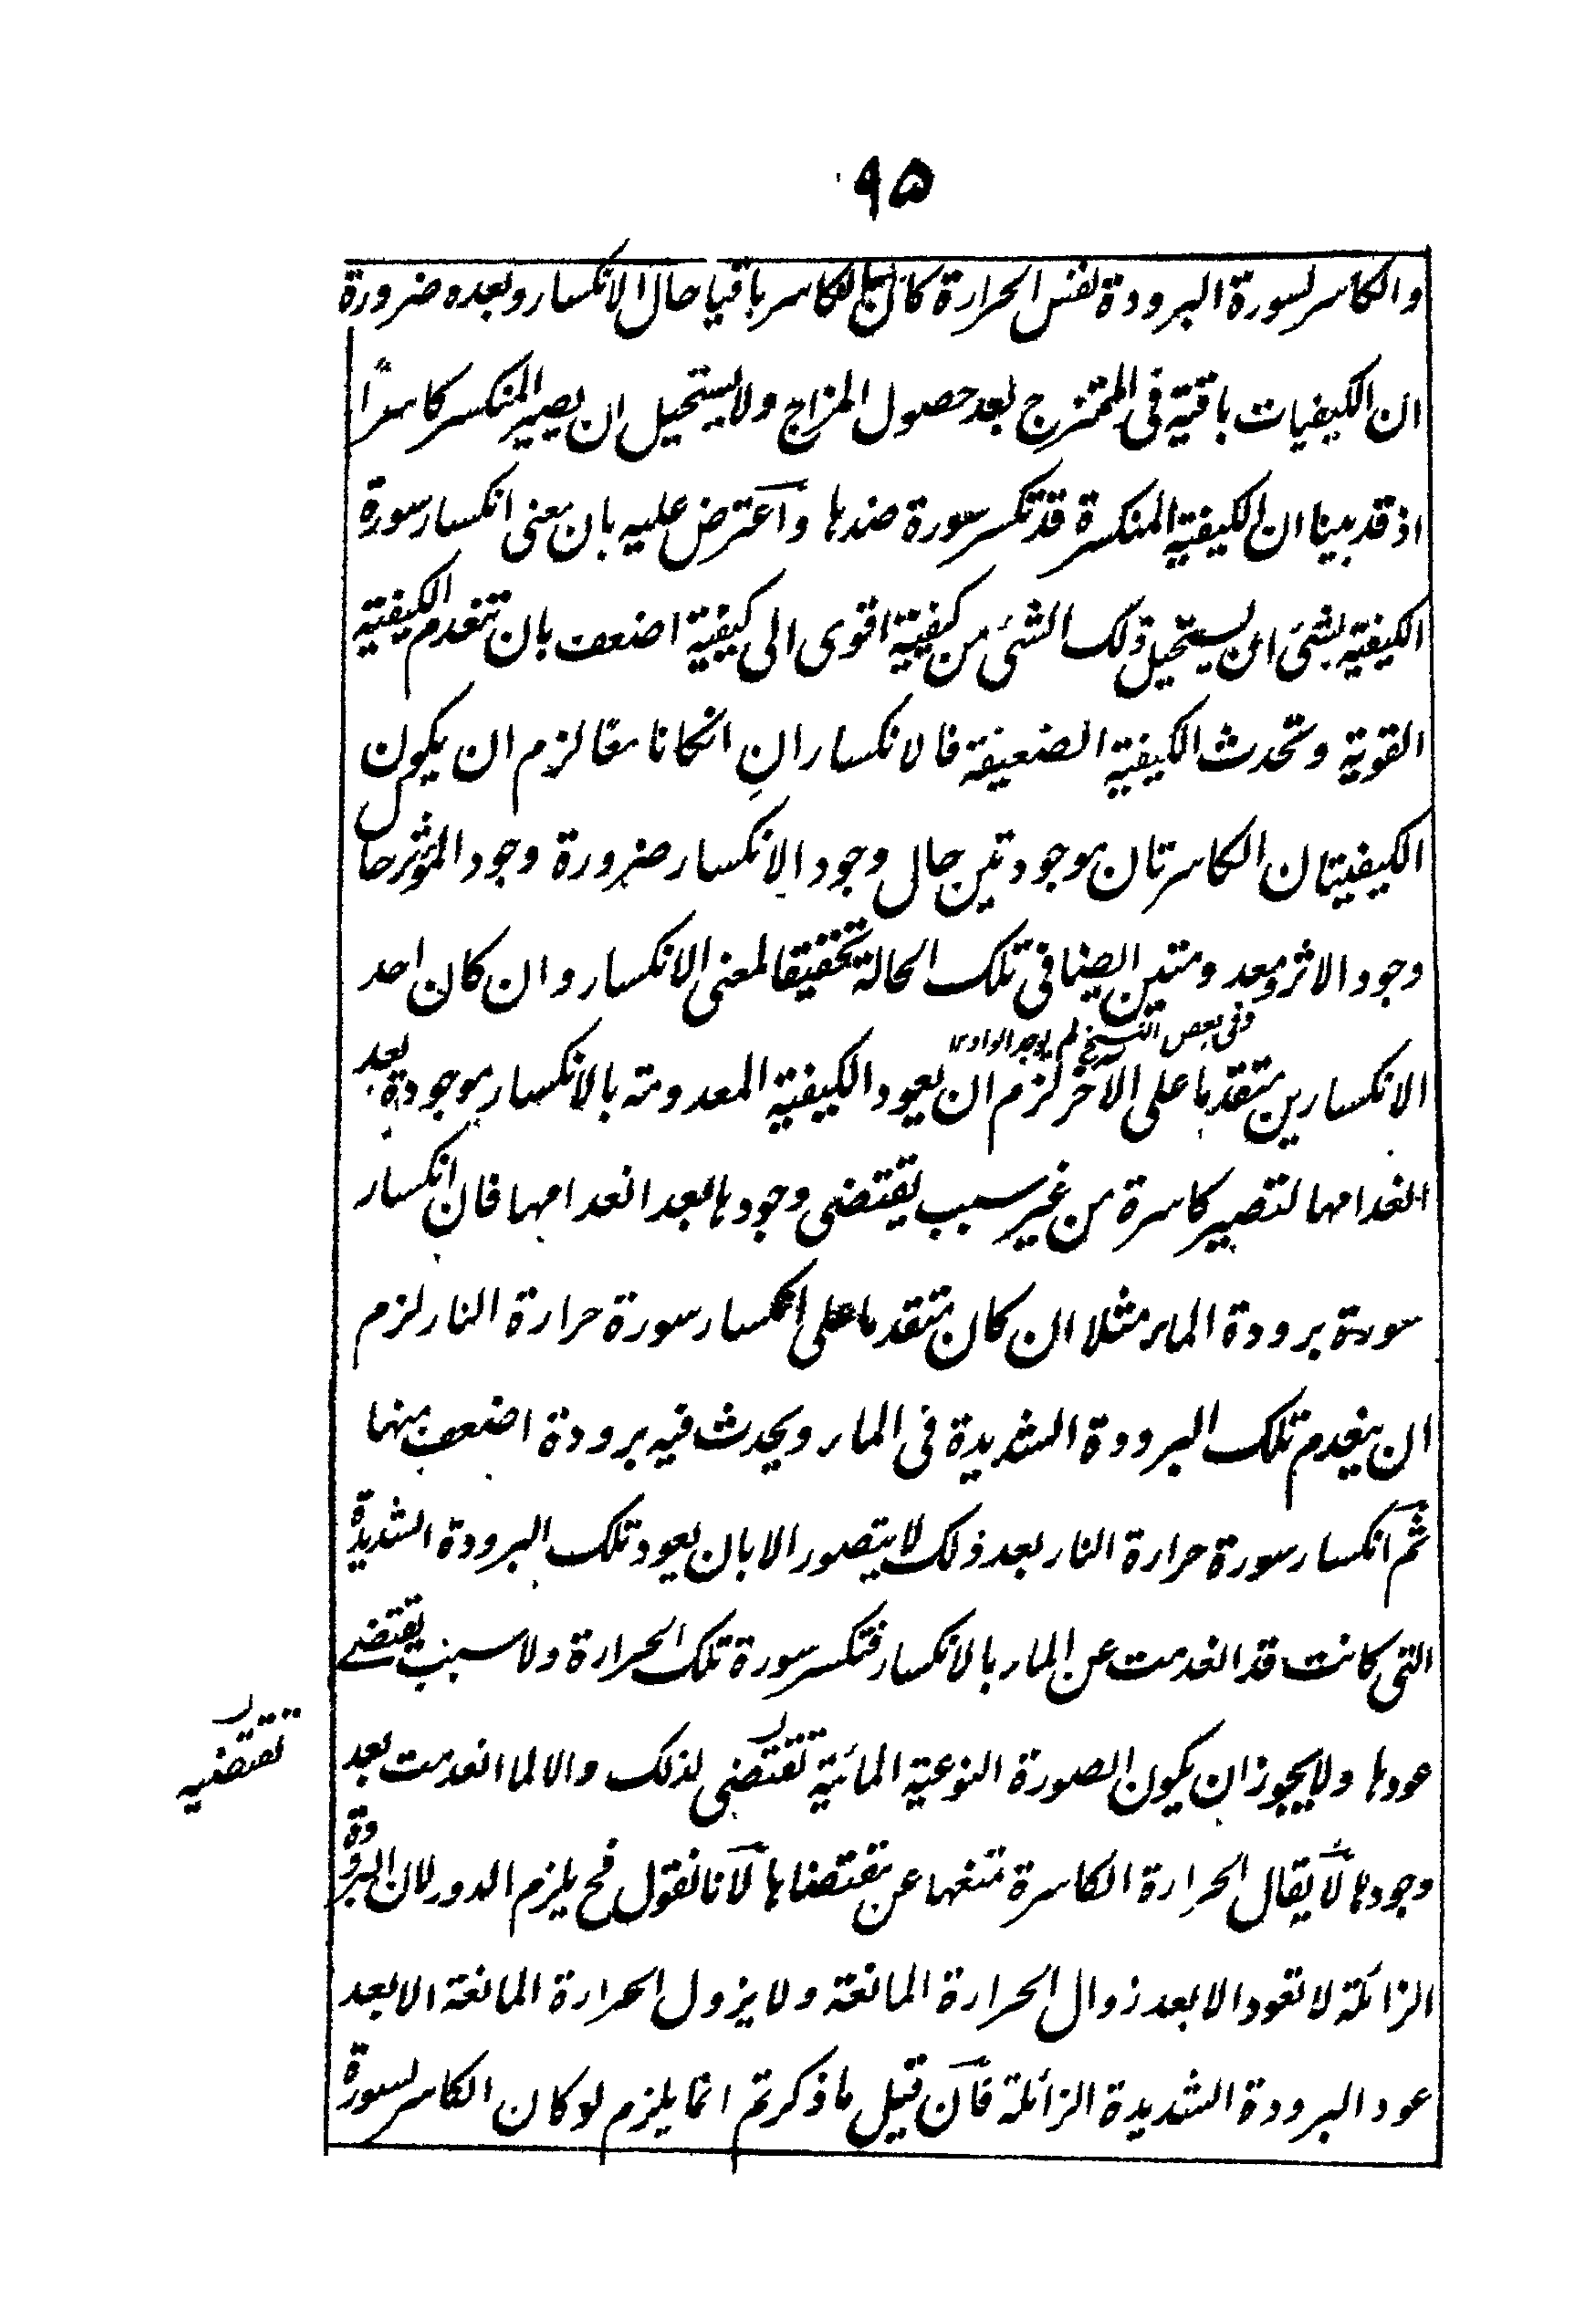 ٩٥
والكاسر لسورة البرودة نفس الحرارة كان الكاسر باقيا حال الانكسار وبعده ضرورة
ان الكيفيات باقية فى الممتزج بعد حصول المزاج ولا يستحيل ان يصير المنكسر كاسرًا
اذ قد بينا ان الكيفية المنكسرة قد تكسر سورة ضدها واعترض عليه بان معنى انكسار سورة
الكيفية بشئ ان يستحيل ذلك الشئ من كيفية اقوى الى كيفية اضعف بان تنعدم الكيفية
القوية وتحدث الكيفية الضعيفة فالانكساران انكانا معا لزم ان يكون
الكيفيتان الكاسرتان موجودتين حال وجود الانكسار ضرورة وجود المؤثر حال
وجود الاثر ومعدومتين ايضا فى تلك الحالة تحقيقا لمعنى الانكسار وان كان احد
وفى بعض النسخ لم يوجد الواو ١٢
الانكسارين متقدما على الآخر لزم ان يعود الكيفية المعدومة بالانكسار موجودة بعد
انعدامها لتصير كاسرة من غير سبب يقتضى وجودها بعد انعدامها فان انكسار
سورة برودة الماء مثلا ان كان متقدما على انكسار سورة حرارة النار لزم
ان ينعدم تلك البرودة الشديدة فى الماء ويحدث فيه برودة اضعف منها
ثم انكسار سورة حرارة النار بعد ذلك لا يتصور الا بان يعود تلك البرودة الشديدة
التى كانت قد انعدمت عن الماء بالانكسار فتكسر سورة تلك الحرارة ولا سبب يقتضے
عودها ولا يجوز ان يكون الصورة النوعية المائية تقتضى لذلك والا لما انعدمت بعد
تقتضيه
وجودها لا يقال الحرارة الكاسرة تمنعها عن مقتضاها لانا نقول فح يلزم الدور لان البرودة
الزائلة لا تعود الا بعد زوال الحرارة المانعة ولا يزول الحرارة المانعة الا بعد
عود البرودة الشديدة الزائلة فان قيل ما ذكرتم انما يلزم لو كان الكاسر لسورة